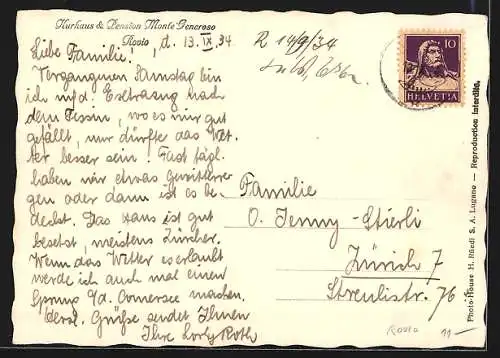 Kurhaus & Pension Monte Generoso
Rovio, d. 13. IX. 34
Liebe Familie!
Vergangenen Samstag bin
ich m/d. Extrazug nach
dem Tessin, wo es mir gut
gefällt, nur dürfte das Wet-
ter besser sein! Fast tägl.
haben wir etwas Gewitterre-
gen oder dann ist es be-
deckt. Das Haus ist gut
besetzt, meistens Zürcher.
Wenn das Wetter es erlaubt
werde ich auch mal einen
Sprung a/d. Comersee machen.
Herzl. Grüße sendet Ihnen
Ihre Roth
R 14/9/34
10
HELVETIA
Familie
O. Jenny-Stierli
Zürich 7
Streulistr. 76
Photo-House H. Rüedi S. A. Lugano — Reproduction interdite.
Rovio